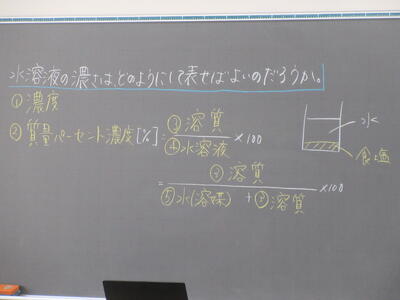 水溶液の濃さは、どのようにして表せばよいのだろうか。
① 濃度
② 質量パーセント濃度[%]: ③ 溶質 / ④ 水溶液 ×100
= ③ 溶質 / ⑤ 水(溶媒) + ③ 溶質 ×100
水
食塩